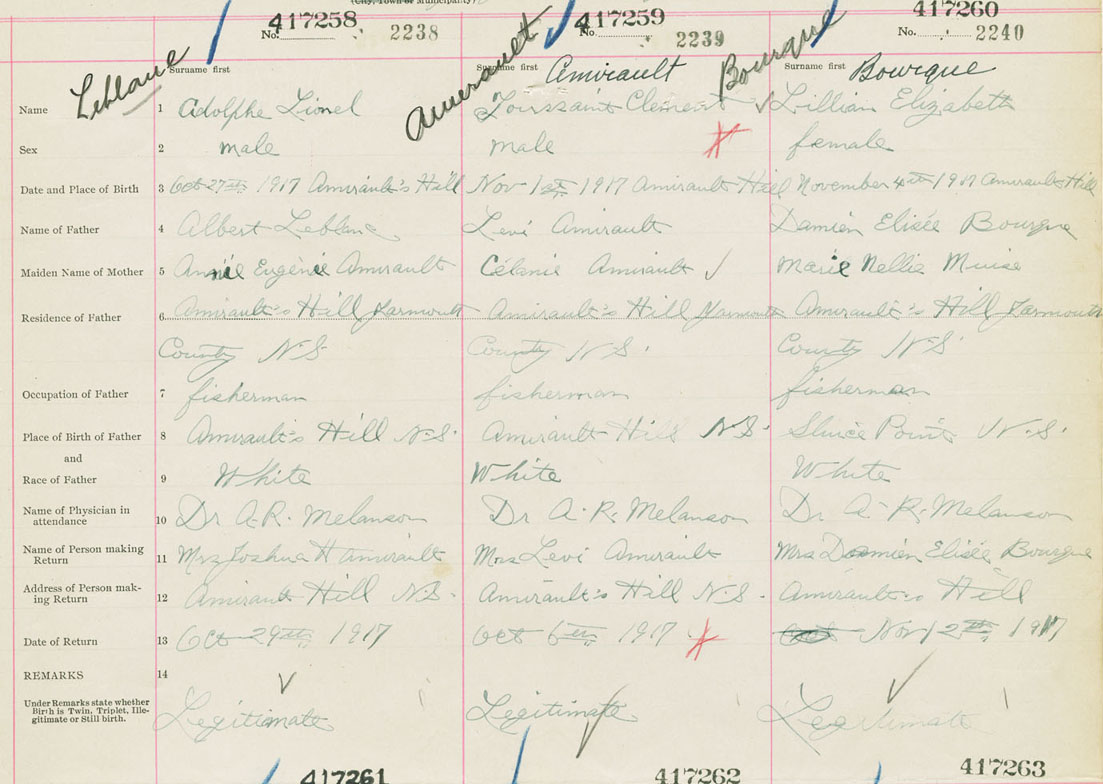 (City, Town or Municipality)
417258 417259 417260
No. 2238 No. 2239 No. 2240
Leblanc Amirault Bourque
Surname first Surname first Amirault Surname first Bourque
Name 1 Adolphe Lionel Toussaint Clement Lillian Elizabeth
Sex 2 male male female
Date and Place of Birth 3 Oct 27th 1917 Amirault's Hill Nov 1st 1917 Amirault Hill November 4th 1917 Amiraults Hill
Name of Father 4 Albert Leblanc Levi Amirault Damien Elisée Bourque
Maiden Name of Mother 5 Annie Eugènie Amirault Célanie Amirault Marie Nellie Muise
Residence of Father 6 Amirault's Hill Yarmouth Amirault's Hill Yarmouth Amirault's Hill Yarmouth
County N.S County N.S. County N.S.
Occupation of Father 7 fisherman fisherman fisherman
Place of Birth of Father 8 Amirault's Hill N.S. Amirault Hill N.S. Sluice Point N.S.
and
Race of Father 9 White White White
Name of Physician in
attendance 10 Dr A.R. Melanson Dr A.R. Melanson Dr. A.R. Melanson
Name of Person making
Return 11 Mrs Joshua H Amirault Mrs Levi Amirault Mrs Damien Elisée Bourque
Address of Person mak-
ing Return 12 Amirault Hill N.S. Amirault's Hill N.S. Amirault's Hill
Date of Return 13 Oct 29th 1917 Oct 6th 1917 Nov 12th 1917
REMARKS 14
Under Remarks state whether
Birth is Twin, Triplet, Ille-
gitimate or Still birth. Legitimate Legitimate Legitimate
417261 417262 417263